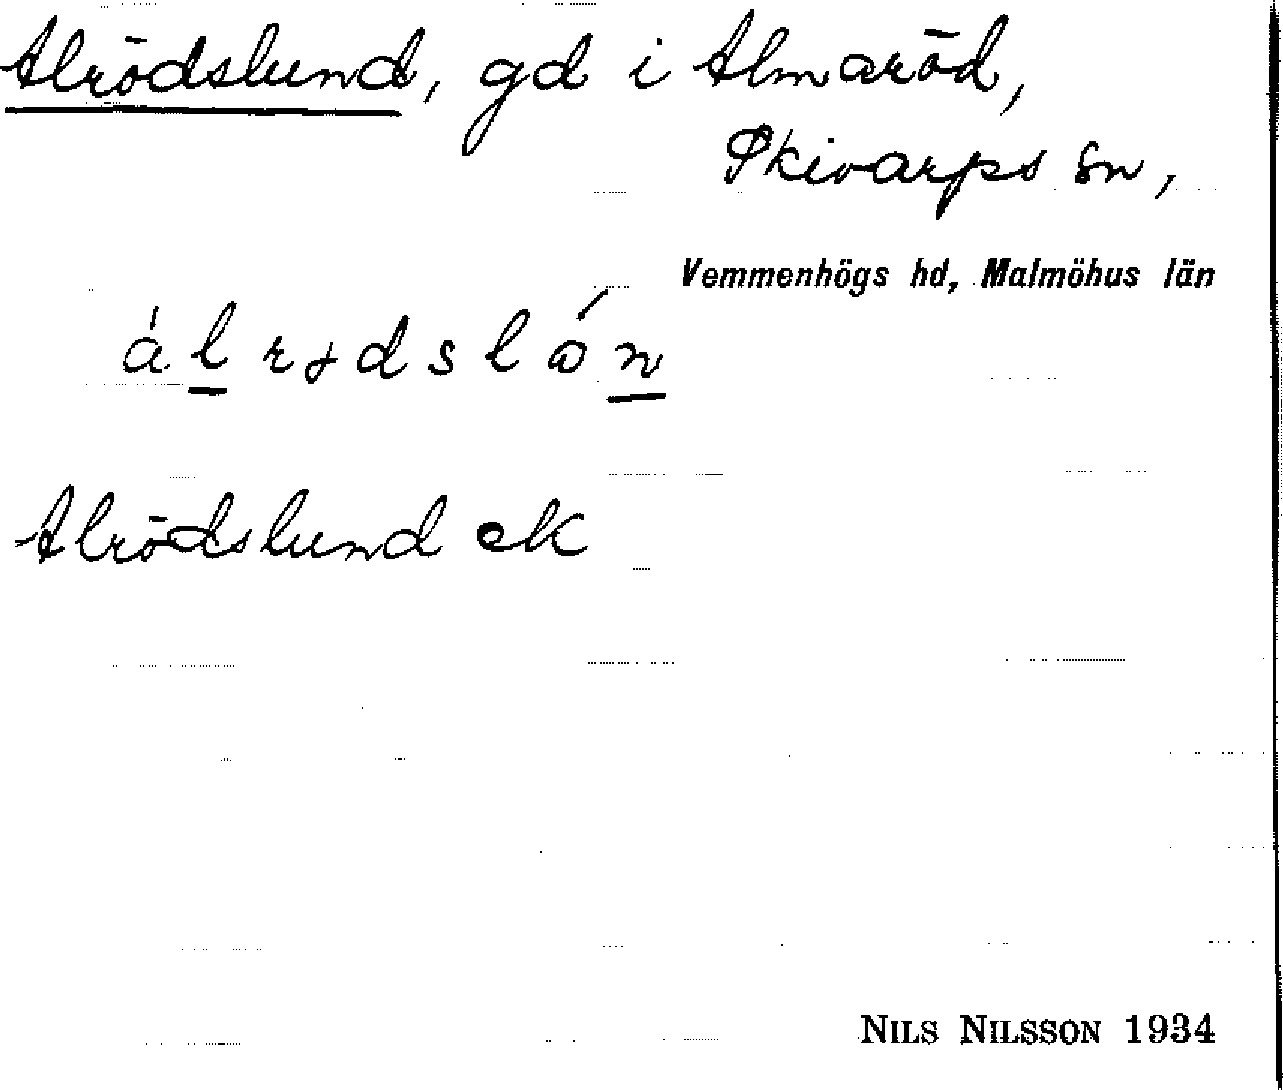 Alrödslund, gd i Almaröd,
Skivarps sn,
Vemmenhögs hd, Malmöhus län
Alrödslund eK
NILS NILSSON 1934